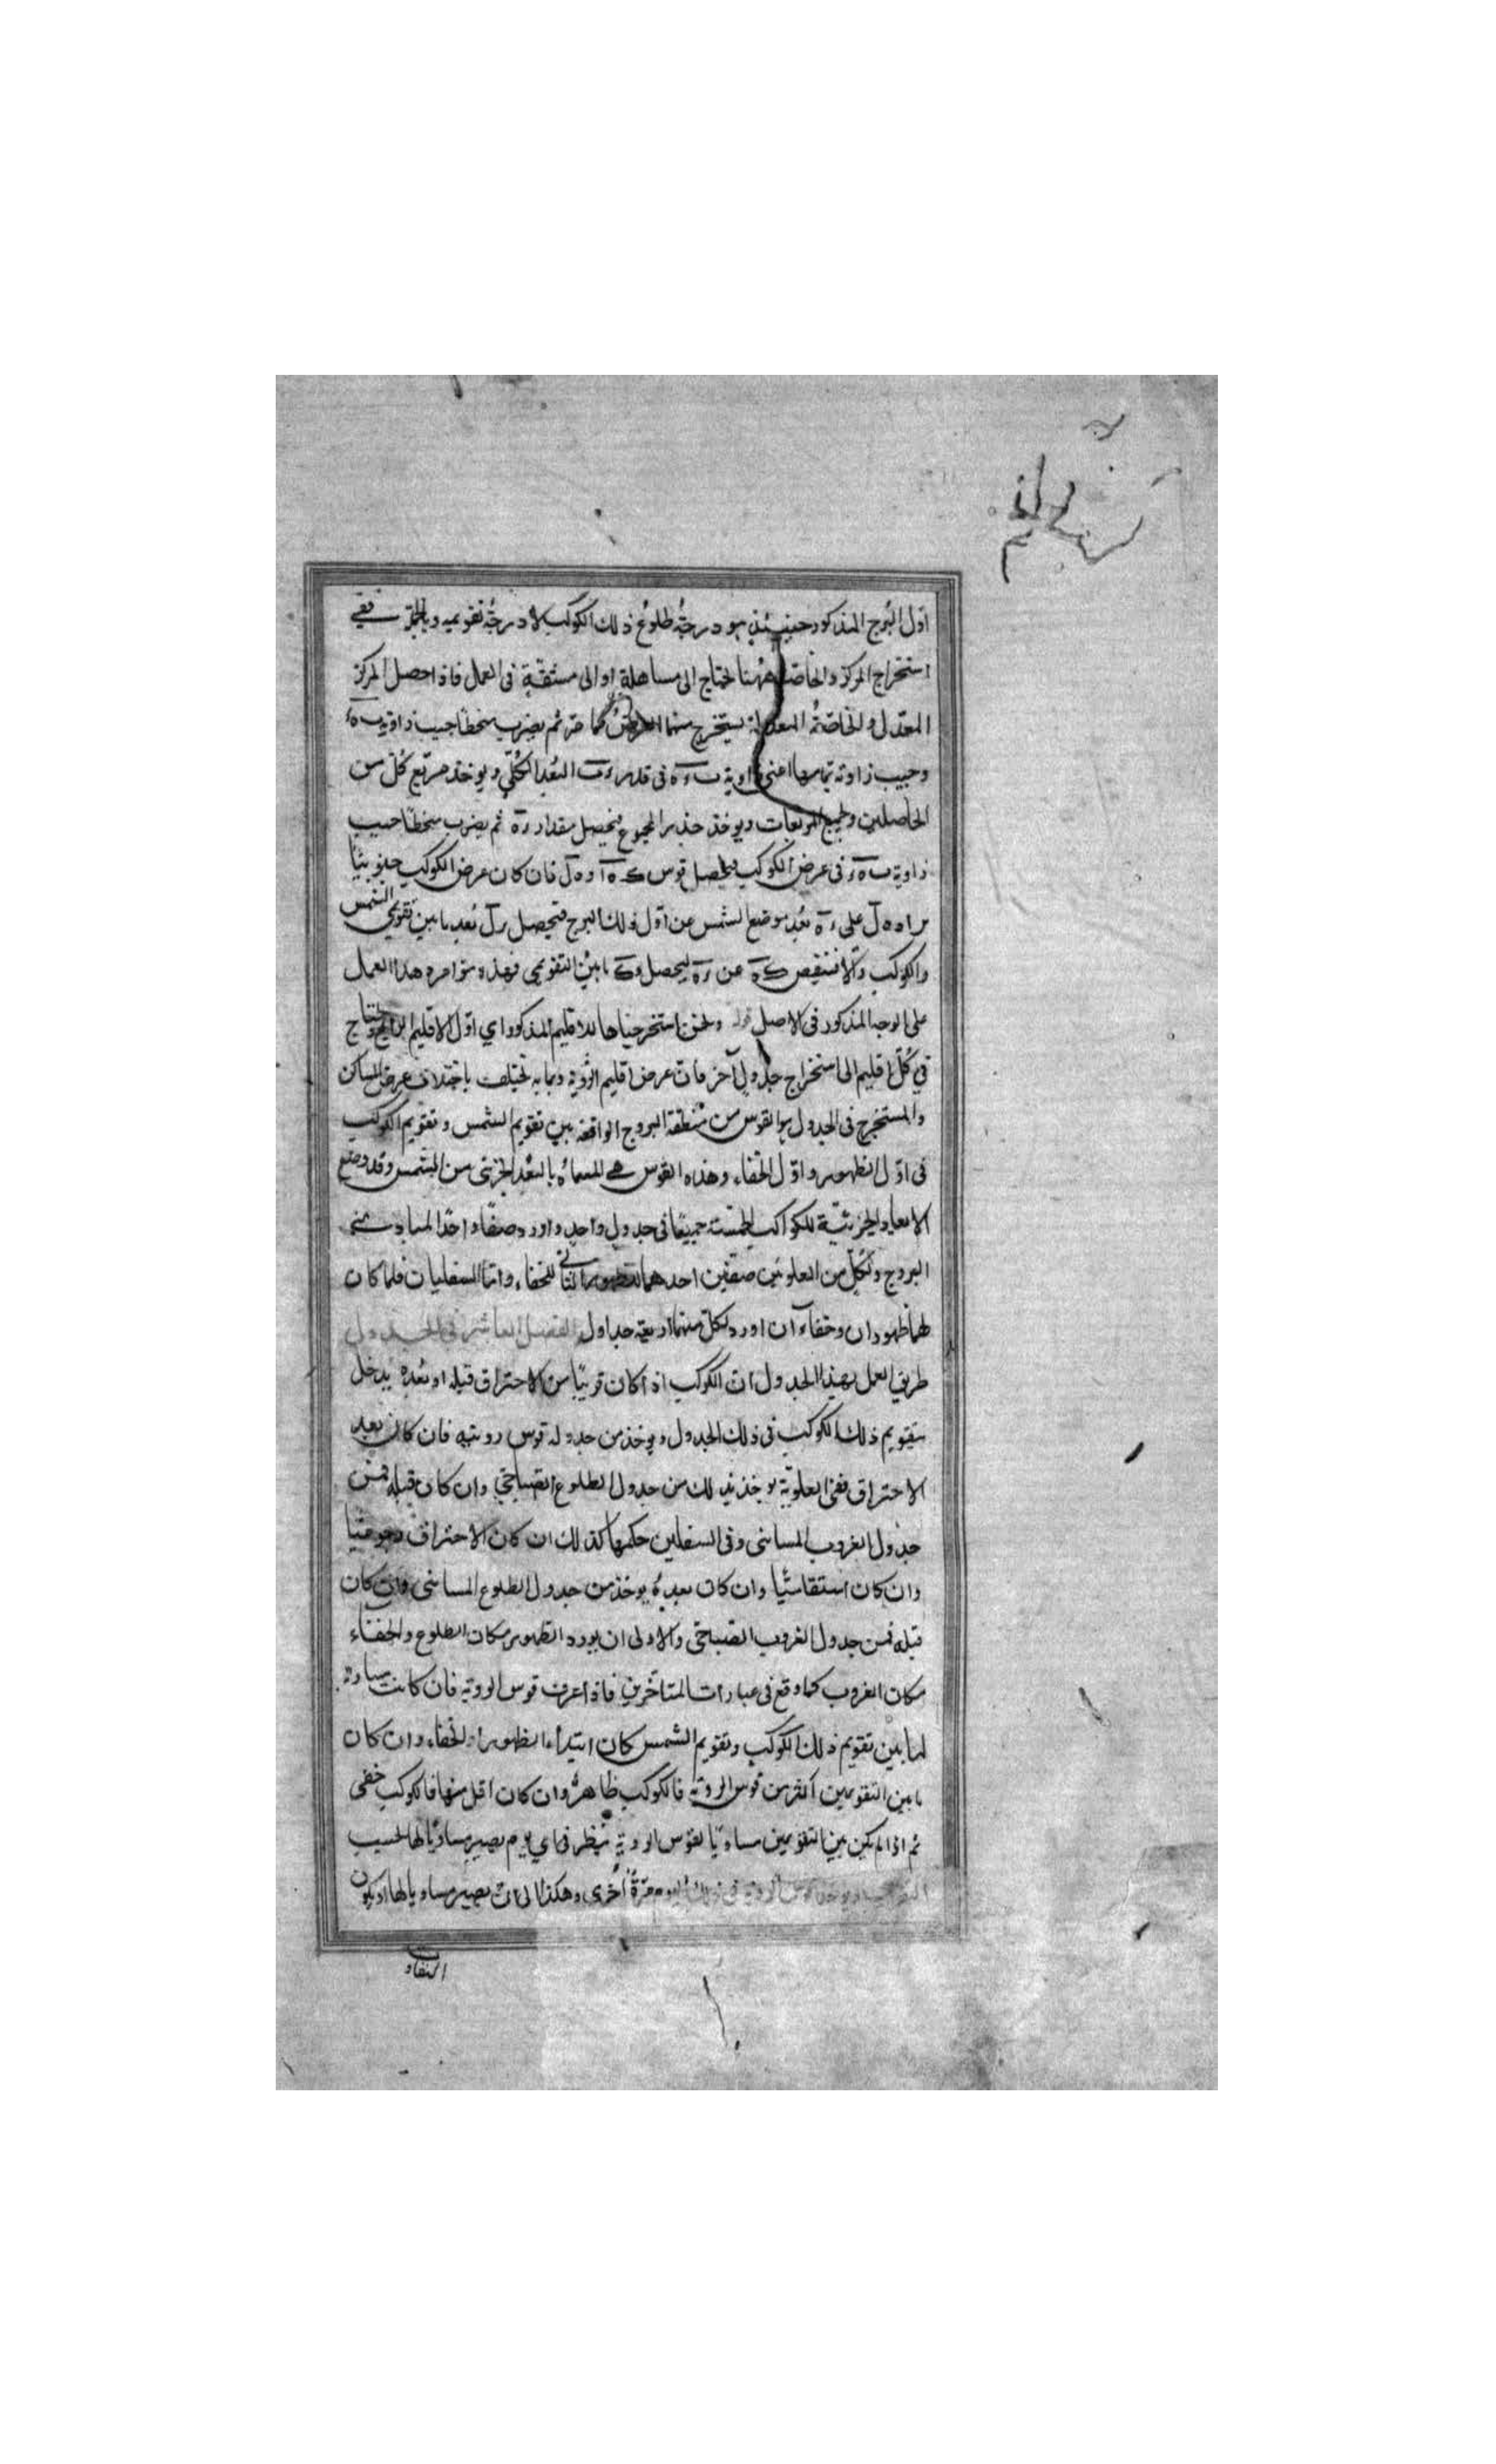 اوّل البُرج المذكور حينئذٍ هو درجةُ طلوع ذلك الكوكب لا درجةُ تقويمه وبالجملة ففي
استخراج المركز والخاصّة ههنا نحتاج الى مساهلةٍ او الى مشقّةٍ فى العمل فاذا حصل المركز
المعدّل والخاصّةُ المعدلة يستخرج منهما العرض كما مرّ ثم يضرب منحطًا جيب زاوية
وجيب زاوية تمامها اعنى زاوية فى قدر البُعد الكُلّي ويوخذ مربّع كُلّ من
الحاصلين ويجمع المربعات ويوخذ جذر المجموع فيحصل مقدار ثم يضرب منحطًا جيب
زاوية فى عرض الكوكب فيحصل قوس فان كان عرض الكوكب جنوبيًّا
يزاد على بُعد موضع الشمس عن اوّل ذلك البرج فيحصل بُعد ما بين تقويمي الشمس
والكوكب والّا فينقص عن ليحصل ما بين التقويمي فهذه مؤامرة هذا العمل
على الوجه المذكور فى الاصل قوله ونحن استخرجناها للاقليم المذكور اي اوّل الاقليم الرابع ونحتاج
في كُلّ اقليم الى استخراج جدولٍ آخر فان عرض اقليم الرؤية وتمامه تختلف باختلاف عرض المساكن
والمستخرج فى الجدول هو القوس من منطقة البروج الواقعة بين تقويم الشمس وتقويم الكوكب
فى اوّل الظهور واوّل الخفاء وهذه القوس هي المسماة بالبُعد الجزئى من الشمس وقد وضع
الابعاد الجزئيّة للكواكب الخمسة جميعًا فى جدول واحدٍ واورد صفًا واحدًا لمبادئ
البروج ولكُلّ من العلويّين صفّين احدهما للظهور والثاني للخفاء وامّا السفليان فلمّا كان
لهما ظهوران وخفاءآن اورد لكلّ منهما اربعة جداول الفصل العاشر فى الجدول
طريق العمل بهذا الجدول ان الكوكب اذا كان قريبًا من الاحتراق قبله او بُعده يدخل
بتقويم ذلك الكوكب فى ذلك الجدول ويوخذ من جدوله قوس رويته فان كان بعد
الاحتراق ففى العلويّة يوخذ ذلك من جدول الطلوع الصباحيّ وان كان قبله فمن
جدول الغروب المسائى وفى السفلين حكمها كذلك ان كان الاحتراق رجوعيًّا
وان كان استقاميًّا وان كان بعدهُ يوخذ من جدول الطلوع المسائى وان كان
قبله فمن جدول الغروب الصباحيّ والاولى ان يورد الظهور مكان الطلوع والخفاء
مكان الغروب كما وقع فى عبارات المتأخّرين فاذا عرف قوس الروية فان كانت مساوية
لما بين تقويم ذلك الكوكب وتقويم الشمس كان ابتداء الظهور او الخفاء وان كان
ما بين التقويمين اكثر من قوس الروية فالكوكب ظاهرٌ وان كان اقل منها فالكوكب خفى
ثم اذا لم يكن بين التقويمين مساويًا لقوس الروية يُنظر فى اي يوم يصير مساويًا لها بحسب
التقريب ويوخذ قوس الروية فى ذلك اليوم مرّةً اُخرى وهكذا الى ان يصير مساويا لها او يكون
التفاوت